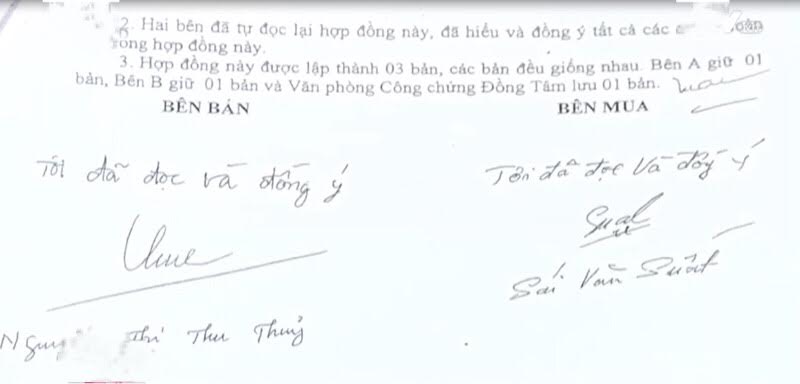 2. Hai bên đã tự đọc lại hợp đồng này, đã hiểu và đồng ý tất cả các
trong hợp đồng này.
3. Hợp đồng này được lập thành 03 bản, các bản đều giống nhau. Bên A giữ 01
bản, Bên B giữ 01 bản và Văn phòng Công chứng Đồng Tâm lưu 01 bản.
BÊN BÁN BÊN MUA
Tôi đã đọc và đồng ý
Tôi đã đọc và đồng ý
Sái Văn Suất
Thị Thu Thuỷ